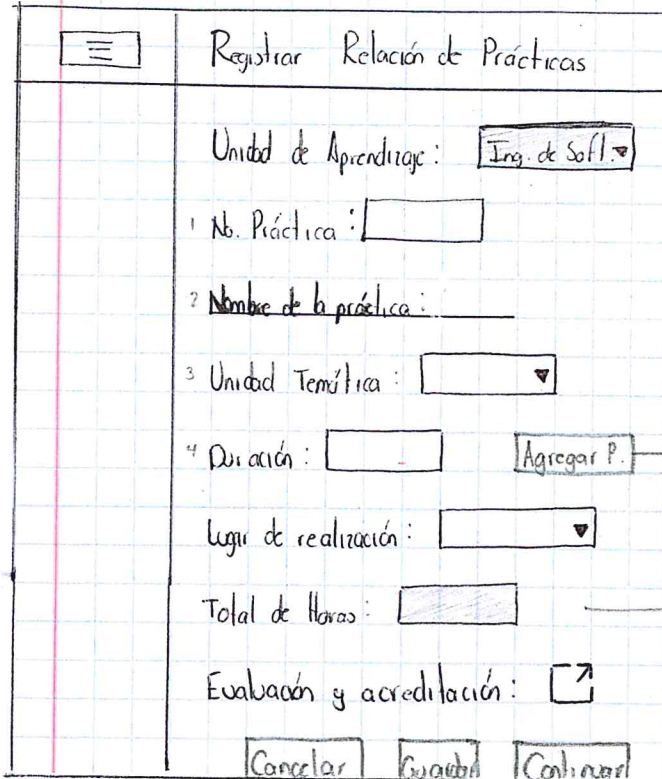 Registrar Relación de Prácticas
Unidad de Aprendizaje: Ing. de Soft.
1 No. Práctica:
2 Nombre de la práctica:
3 Unidad Temática:
4 Duración: Agregar P.
Lugar de realización:
Total de Horas:
Evaluación y acreditación:
Cancelar Guardar Continuar